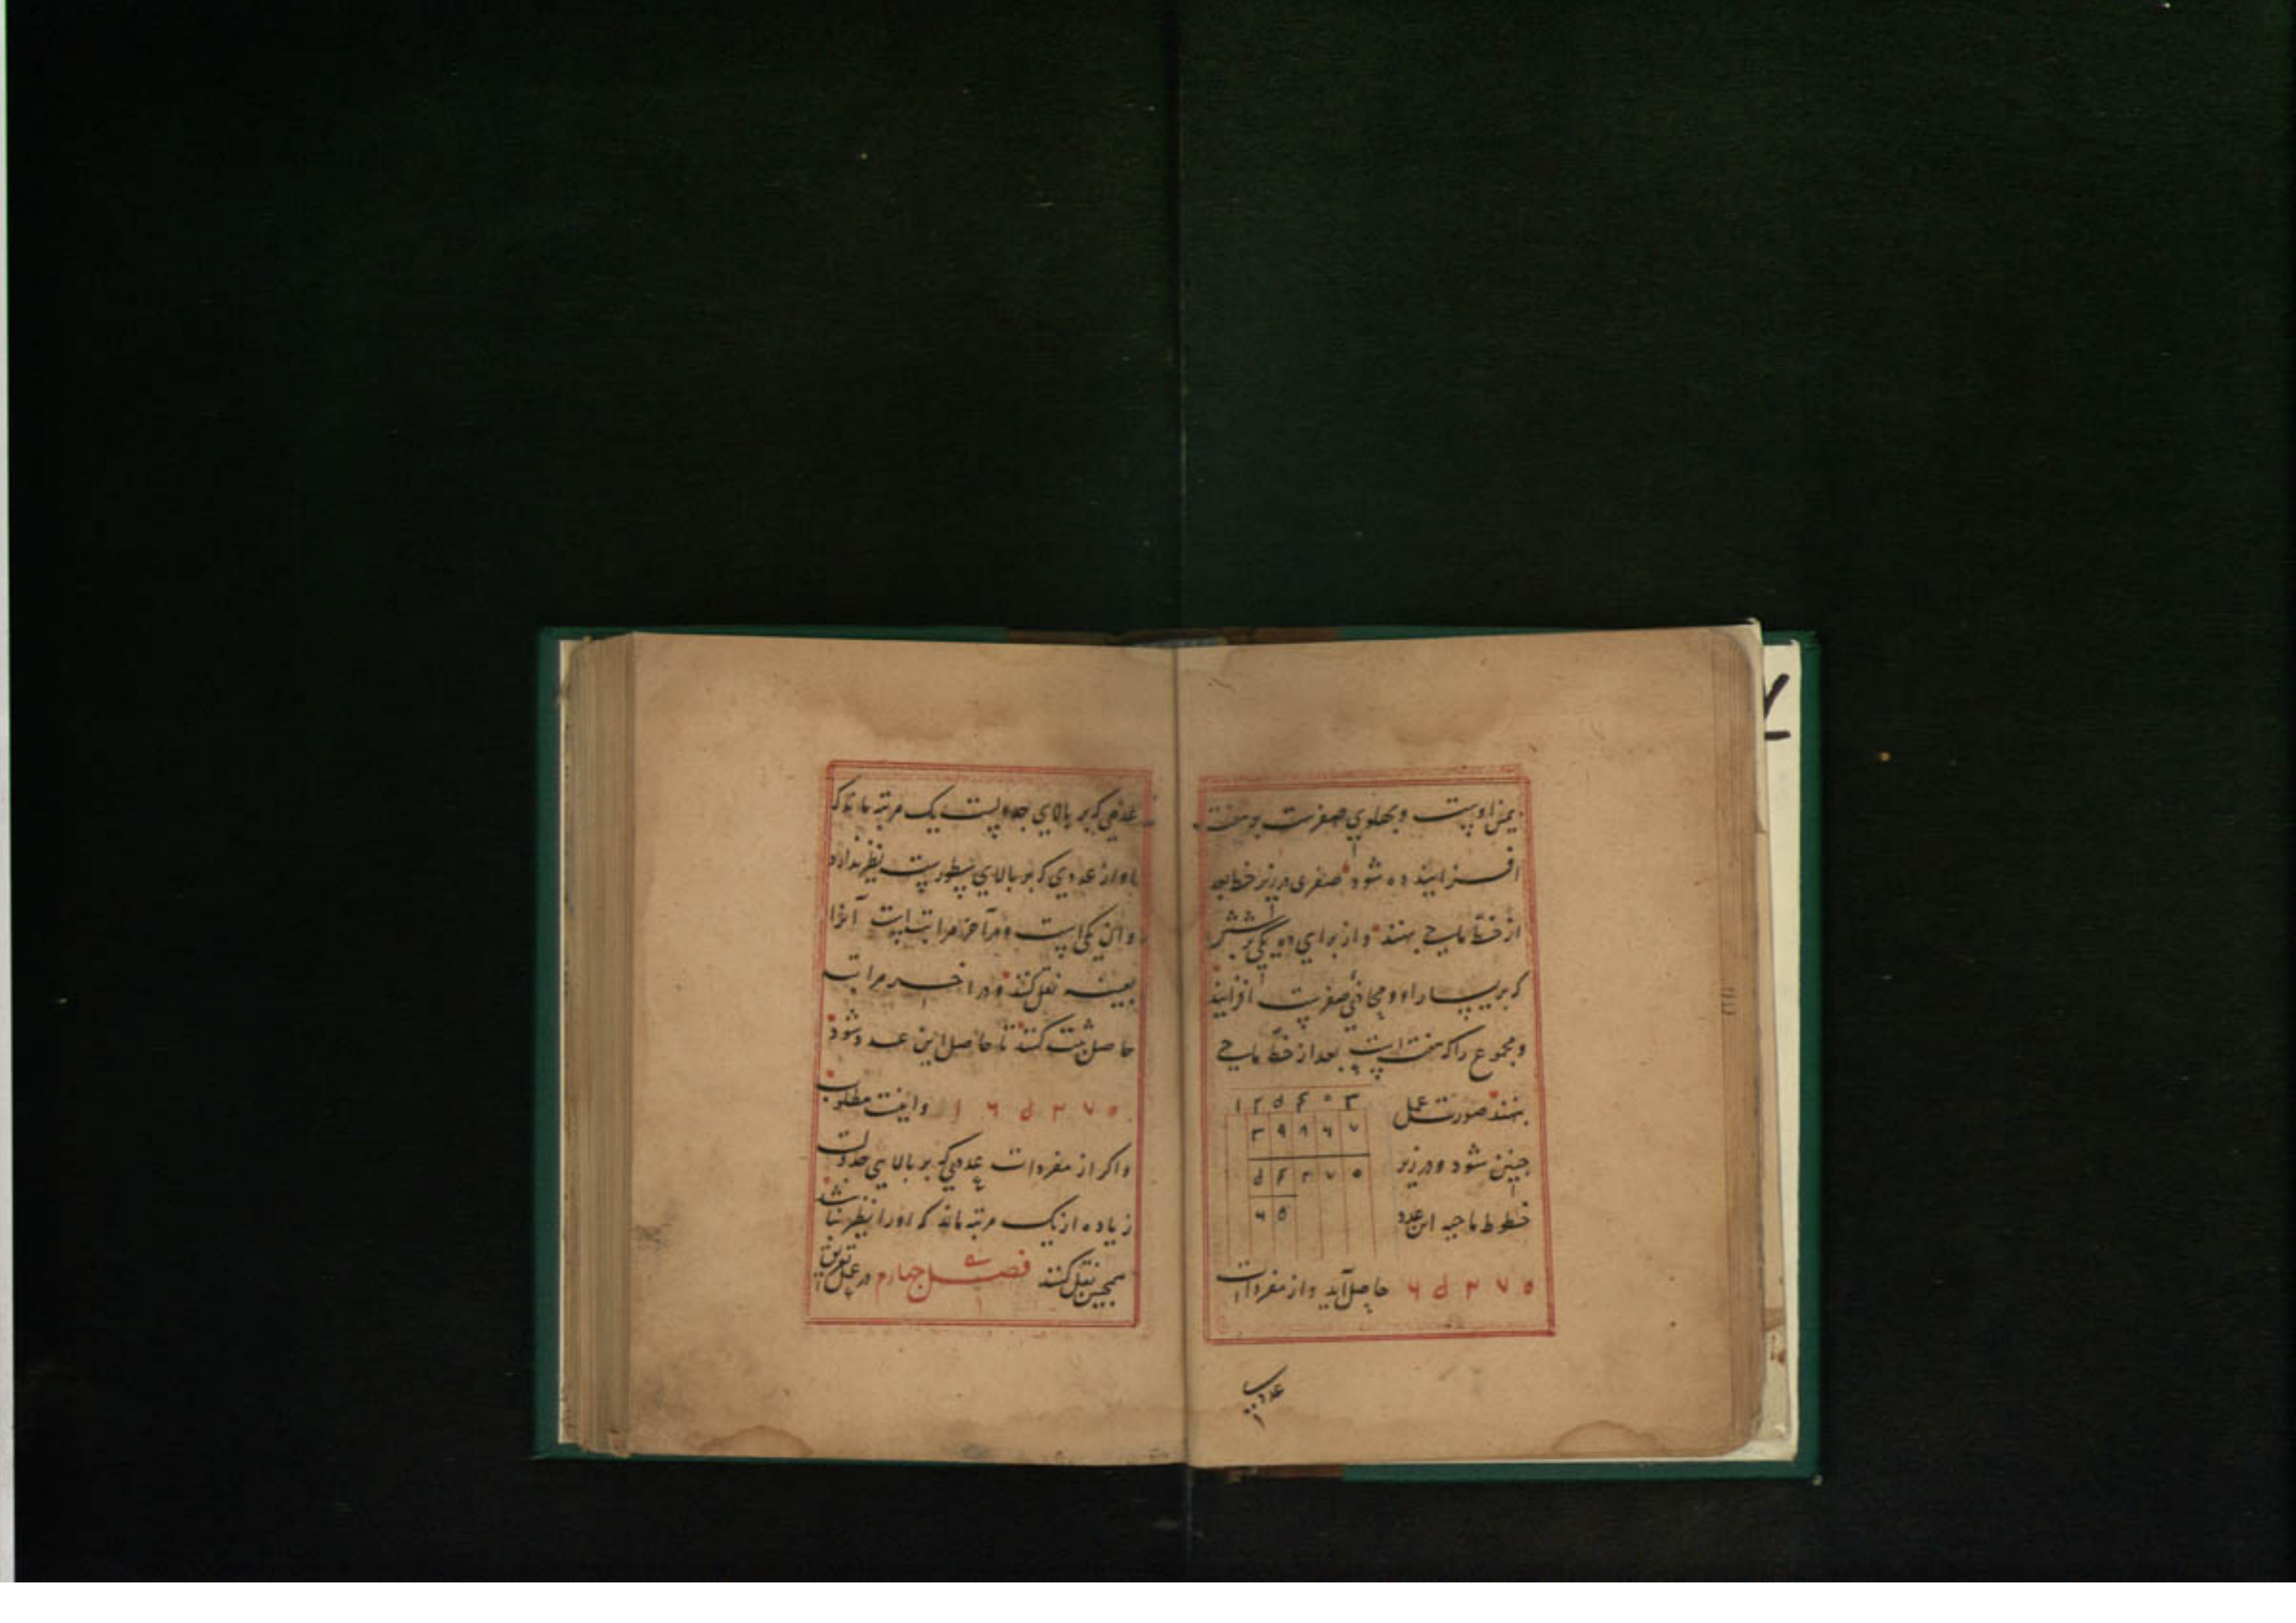 یمین اوست و پهلوی صفرست و هفت
افزایند ده شود صفری در زیر خط بعد
از خط ماحی بنهند و از برای ده یکی بر شش
که بر یسار او و محاذی صفرست افزایند
و مجموع را که هفت است بعد از خط ماحی
بنهند صورت عمل
چنین شود و در زیر
خطوط ماحیه این عدد
۱ ۲ ۵ ۴ ۰ ۳
۳ ۹ ۹ ۶ ۷
۵ ۴ ۳ ۷ ۰
۶ ۵
۶ ۵ ۳ ۷ ۰ حاصل آید و از مفردات
عددی
عددی که بر بالای جدولست یک مرتبه ماند که
او از عددی که بر بالای سطورست نظیر ندارد
و آن یکی است و در آخر مراتب است آنرا
بعینه نقل کنند و در آخر مراتب
حاصل ثبت کنند تا حاصل این عدد شود
۱ ۶ ۵ ۳ ۷ ۰ و اینست مطلوب
و اگر از مفردات عددی که بر بالای جدولست
زیاده از یک مرتبه ماند که او را نظیر نباشد
همچنین نقل کنند فصل چهارم در عمل تفریق